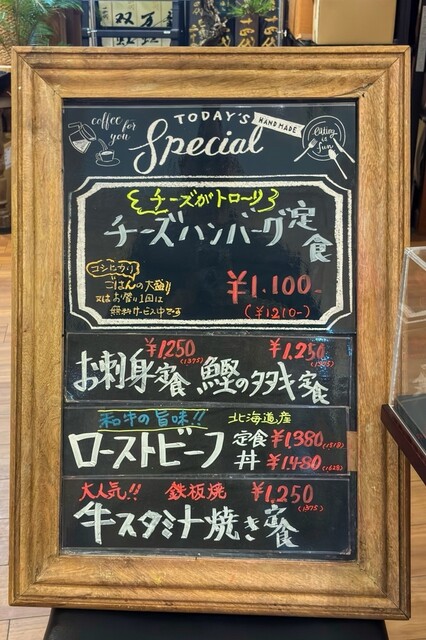 coffee for you
TODAY'S
Special
HAND MADE
Eating is fun
チーズがトローリ
チーズハンバーグ定食
コシヒカリ
ごはんの大盛り
又はお替り1回は
無料サービス中です
¥1,100-
(¥1210-)
¥1250
(1375)
お刺身定食
¥1,250
(1375)
鰹のタタキ定食
和牛の旨味!!
北海道産
ローストビーフ
定食 ¥1,380 (1518)
丼 ¥1,480 (1628)
大人気!! 鉄板焼 ¥1,250
(1375)
牛スタミナ焼き定食